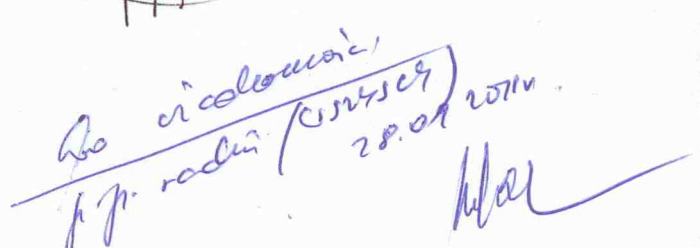 Do wiadomości
p.p. radni (wszyscy)
28.01 2011r.